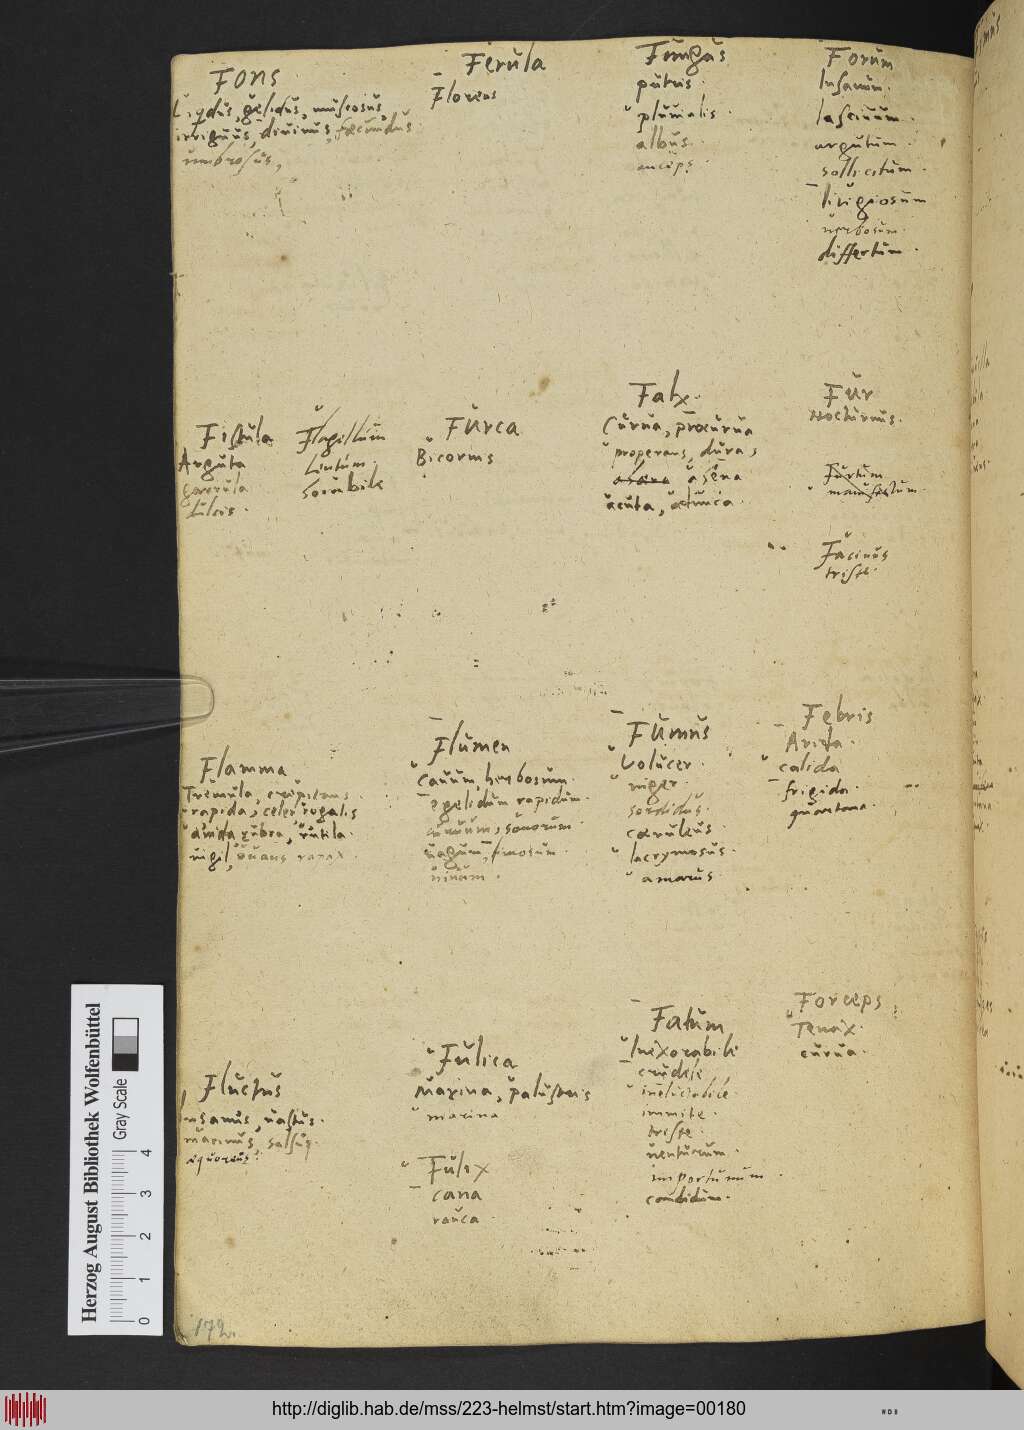 Fons
Liq̃dus, gelidus, muscosus
irriguus, diuinus, fæcundus
umbrosus,
Ferula
Florens
Fungus
putris
pluuialis
albus
anceps
Forum
Insanum.
lasciuum.
argutum.
sollicitum.
litigiosum
uerbosum.
differtum.
Fistula
Arguta
garrula
dulcis.
Flagellum
Lentum.
Furca
Bicornis
Falx.
Curua, procurua
properans, dura,
asena
acuta, adunca.
Fur
Nocturnus.
Furtum
manifestum.
Facinus
triste.
Flamma
Tremula, crepitans
rapida, celer rogalis
auida rubra, rutila.
uigil,
Flumen
Cauum herbosum.
gelidum rapidum.
curuum, sonorum
uagum,
Fumus
Volucer.
niger.
sordidus.
cæruleus.
lacrymosus.
amarus
Febris
Arida.
calida
frigida.
quartana.
Fluctus
Insanus, uastus.
marinus, salsus.
æquoreus.
Fulica
Marina, palustris
marina
Fulix
cana
rauca
Fatum
Inexorabile
crudele
ineluctabile.
immite.
triste.
uenturum.
importunum
condidum.
Forceps
Tenax.
curua.
172.
Herzog August Bibliothek Wolfenbüttel
Gray Scale
0 1 2 3 4
http://diglib.hab.de/mss/223-helmst/start.htm?image=00180